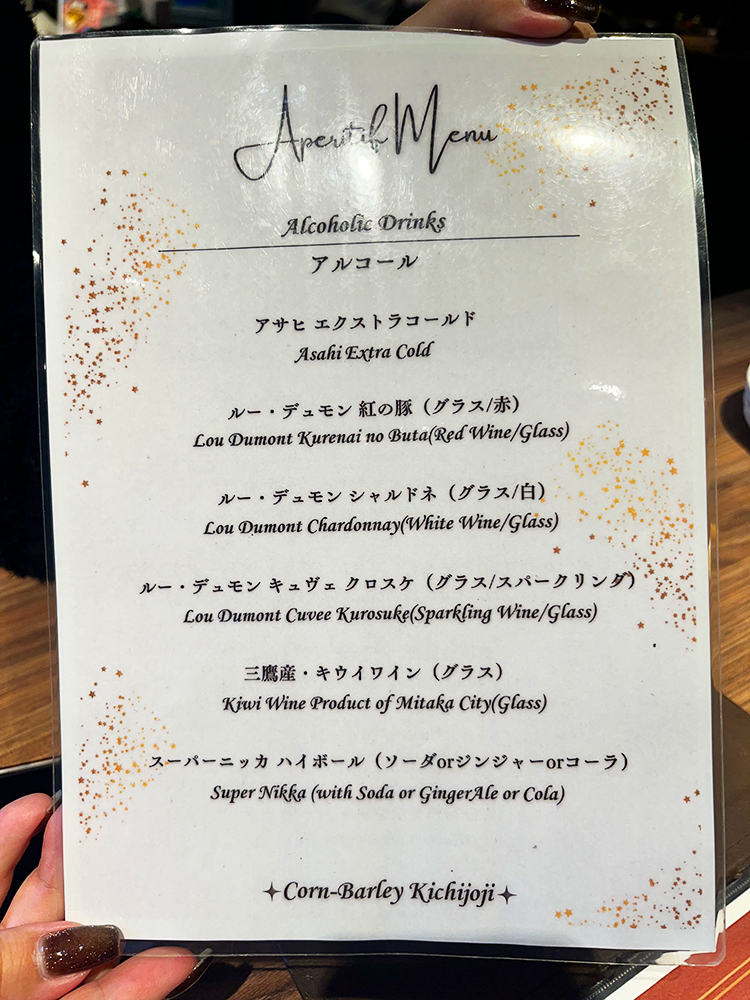 Aperitif Menu
Alcoholic Drinks
アルコール
アサヒ エクストラコールド
Asahi Extra Cold
ルー・デュモン 紅の豚（グラス/赤）
Lou Dumont Kurenai no Buta(Red Wine/Glass)
ルー・デュモン シャルドネ（グラス/白）
Lou Dumont Chardonnay(White Wine/Glass)
ルー・デュモン キュヴェ クロスケ（グラス/スパークリング）
Lou Dumont Cuvee Kurosuke(Sparkling Wine/Glass)
三鷹産・キウイワイン（グラス）
Kiwi Wine Product of Mitaka City(Glass)
スーパーニッカ ハイボール（ソーダorジンジャーorコーラ）
Super Nikka (with Soda or GingerAle or Cola)
✦Corn-Barley Kichijoji✦